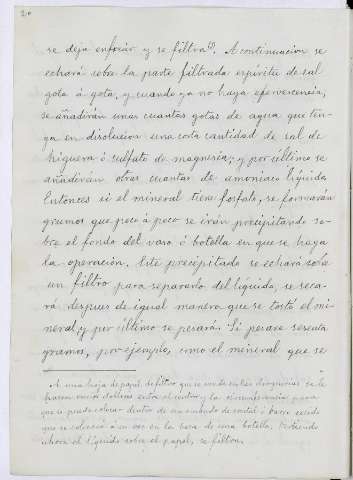 se deja enfriar y se filtra (1). A continuación se
echará sobre la parte filtrada espíritu de sal
gota á gota, y cuando ya no haya efervescencia,
se añadirán unas cuantas gotas de agua que ten-
ga en disolución una corta cantidad de sal de
higuera ó sulfato de magnesia; y por último se
añadirán otras cuantas de amoniaco líquido.
Entonces si el mineral tiene fosfato, se formarán
grumos que poco á poco se irán precipitando so-
bre el fondo del vaso ó botella en que se haga
la operación. Este precipitado se echará sobre
un filtro para separarlo del líquido, se seca-
rá despues de igual manera que se tostó el mi-
neral, y por último se pesará. Si pesare sesenta
gramos, por ejemplo, como el mineral que se
A una hoja de papel de filtro que se vende en las droguerías se le
hacen varios dobleces entre el centro y la circunferencia para
que se pueda colocar dentro de un embudo de cristal ó barro
que se colocará á su vez en la boca de una botella. Echando
ahora el líquido sobre el papel, se filtra.